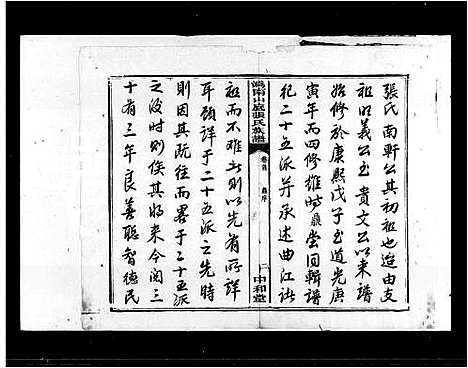 張氏南軒公其初祖也遊由支
祖明義公至貴文公以來譜
始修於康熙戊子至道光庚
寅年而四修雄時鼎嘗回輯譜
祀二十五派并承述曲江諸
湖南山底張氏族譜
卷首
序
二
中和堂
祖而不难士則以先有所詳
耳顧詳于二十五派之先時
則因其既往而畧于二十五派
之後时則俟其將来今閱三
十有三年良善聪智德民